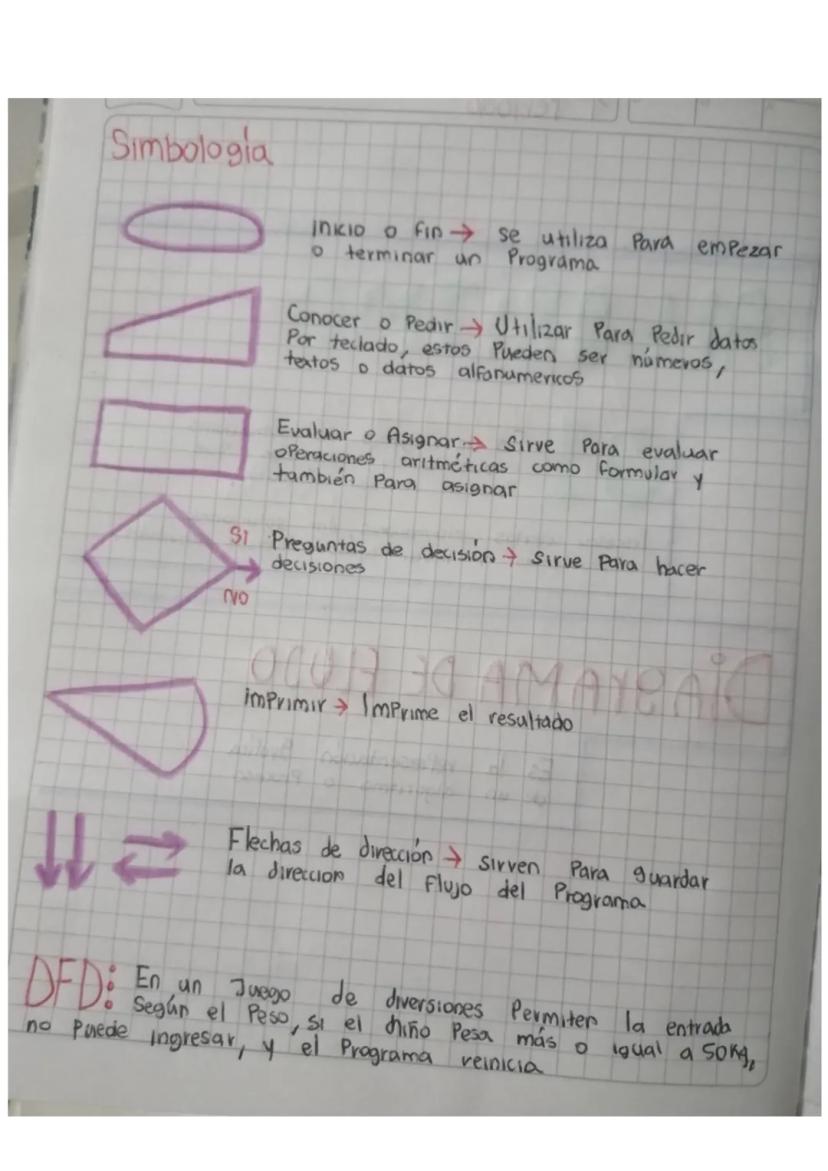 Simbología
inicio o fin → se utiliza Para empezar
o terminar un Programa
Conocer o Pedir → Utilizar Para Pedir datos
Por teclado, estos Pueden ser números,
textos o datos alfanumericos
Evaluar o Asignar → Sirve Para evaluar
operaciones aritméticas como formular y
también Para asignar
SI
Preguntas de decisión → Sirve Para hacer
decisiones
NO
DIAGRAMA DE FLUJO
imprimir → Imprime el resultado
Es la representación
de un algoritmo o Proceso
Flechas de dirección → Sirven Para guardar
la direccion del Flujo del Programa
DFD: En un Juego de diversiones Permiten la entrada
Según el Peso, si el niño Pesa más o igual a 50Kg,
no Puede ingresar, y el Programa reinicia